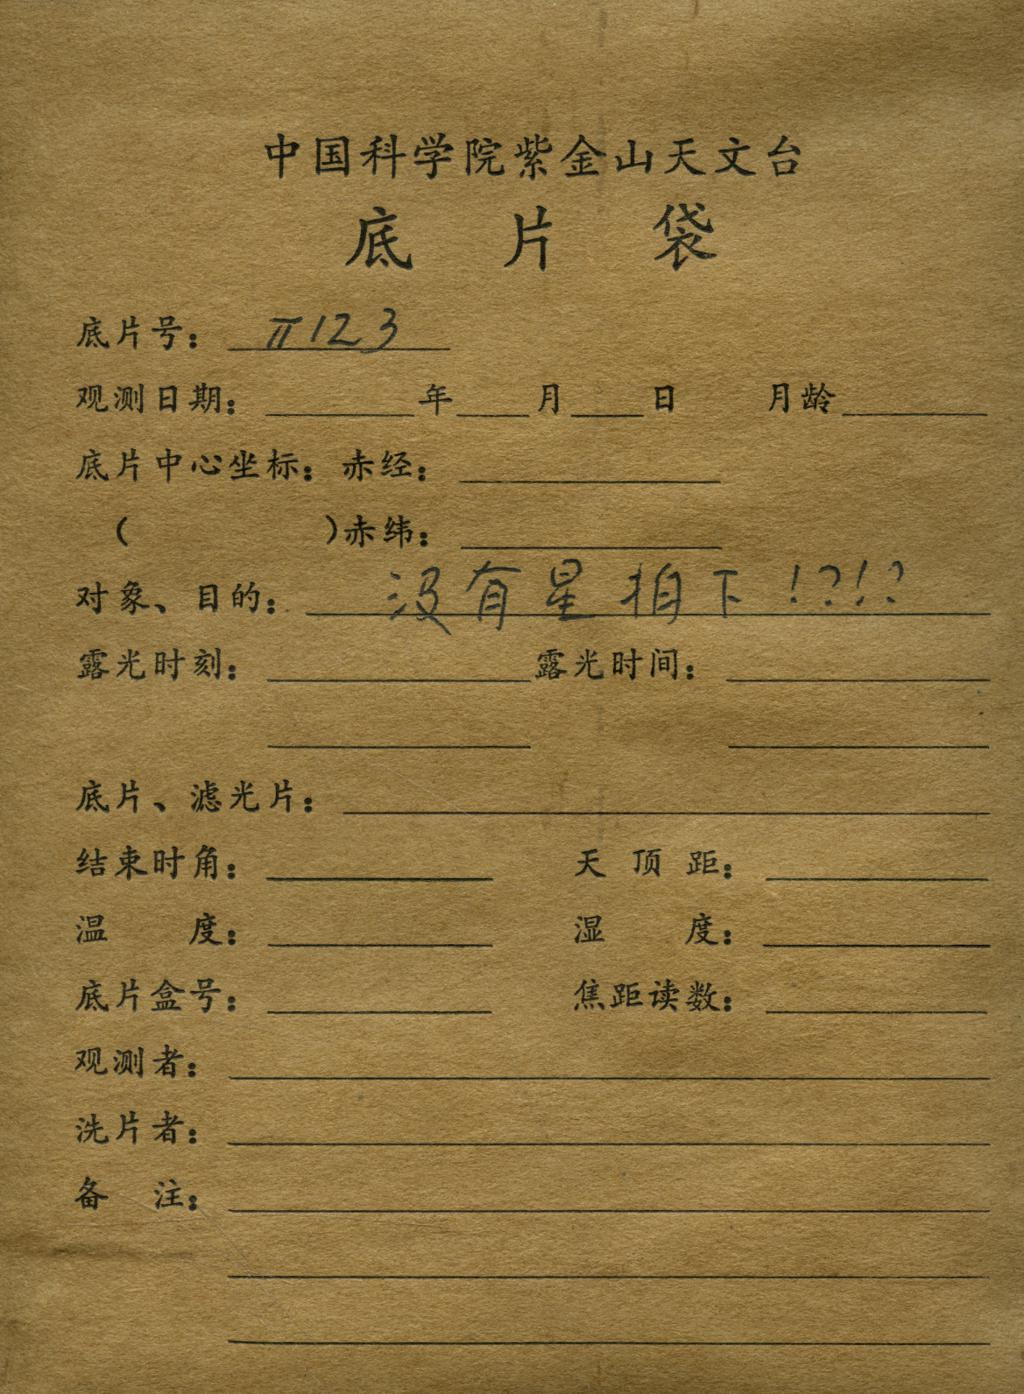 中国科学院紫金山天文台
底片袋
底片号： π123
观测日期： 年 月 日 月龄
底片中心坐标：赤经：
（ ）赤纬：
对象、目的： 没有星拍下!?!?
露光时刻： 露光时间：
底片、滤光片：
结束时角： 天顶距：
温度： 湿度：
底片盒号： 焦距读数：
观测者：
洗片者：
备注：